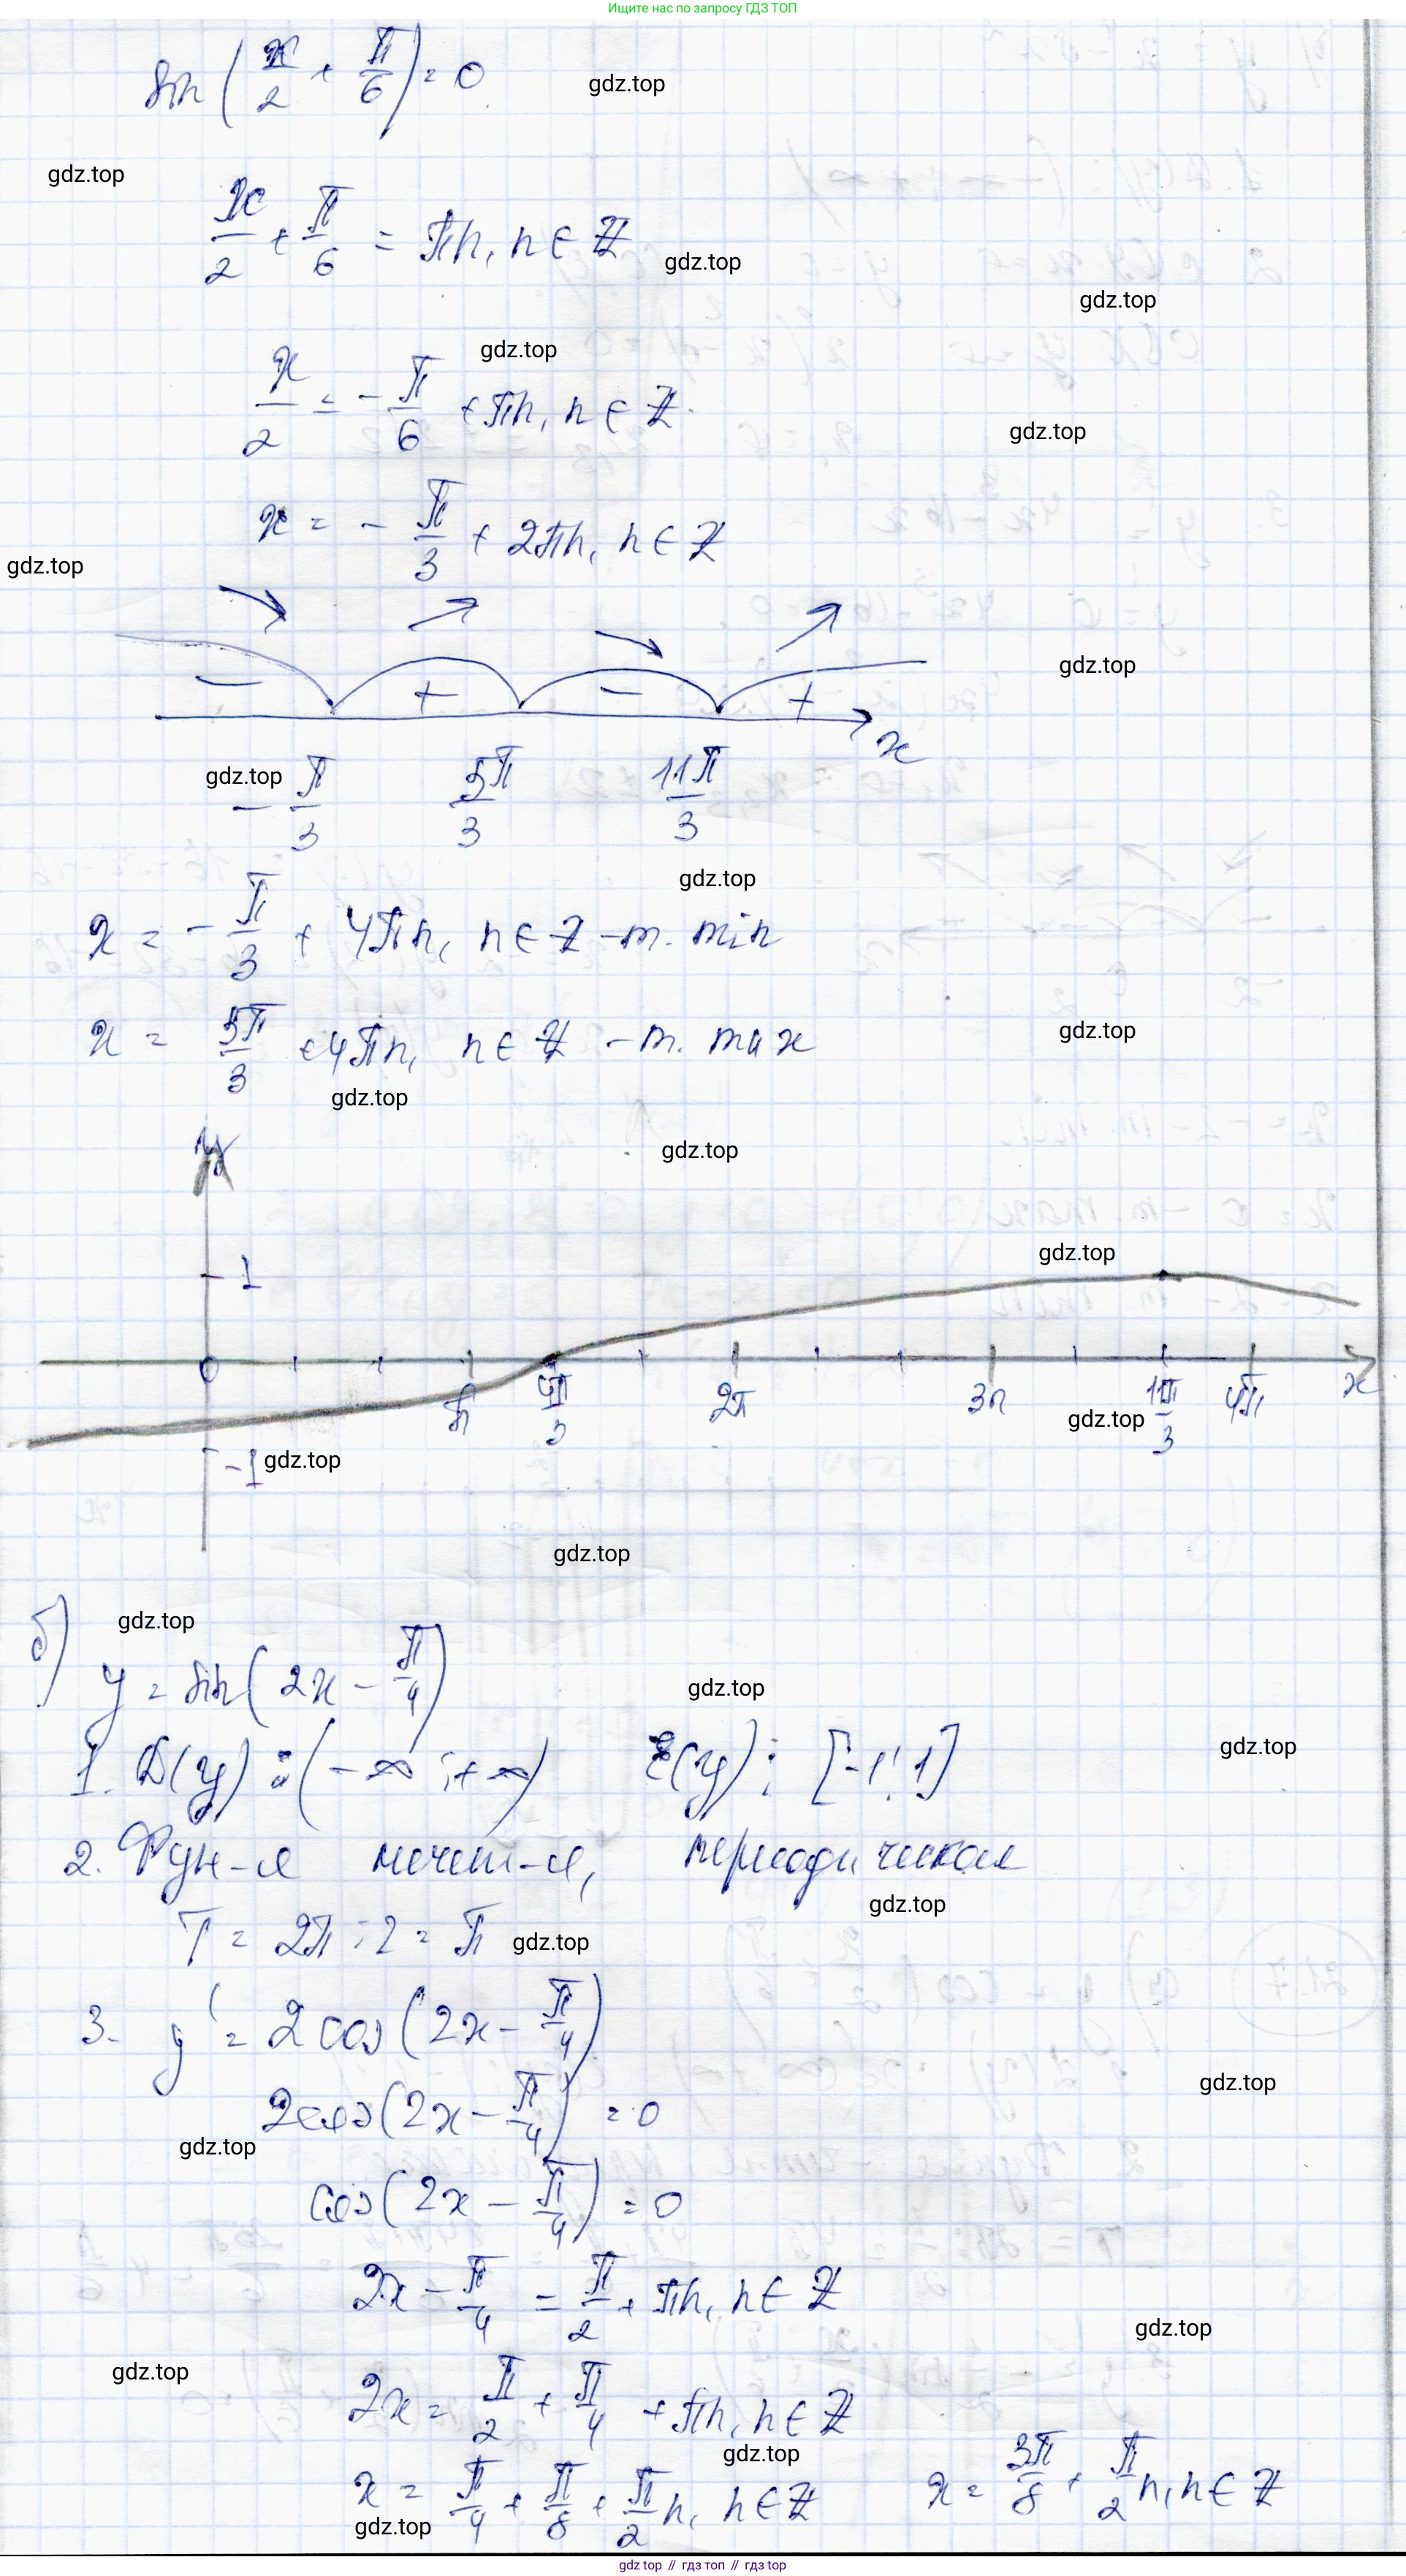 Ищите нас по запросу ГДЗ ТОП
sin(x/2 + π/6) = 0
gdz.top
gdz.top
x/2 + π/6 = πn, n ∈ Z
gdz.top
gdz.top
gdz.top
x/2 = -π/6 + πn, n ∈ Z.
gdz.top
x = - π/3 + 2πn, n ∈ Z
gdz.top
gdz.top
- + - + x
gdz.top
- π/3 5π/3 11π/3
gdz.top
x = - π/3 + 4πn, n ∈ Z - т. min
x = 5π/3 + 4πn, n ∈ Z - т. max
gdz.top
gdz.top
y
gdz.top
gdz.top
1
0 π 4π/3 2π 3π 11π/3 4π x
gdz.top
-1
gdz.top
gdz.top
б)
gdz.top
y = sin(2x - π/4)
gdz.top
gdz.top
1. D(y): (-∞; +∞) E(y): [-1; 1]
2. Фун-я нечет-я, периодическая
gdz.top
T = 2π : 2 = π
gdz.top
3. y' = 2cos(2x - π/4)
gdz.top
2cos(2x - π/4) = 0
gdz.top
cos(2x - π/4) = 0
2x - π/4 = π/2 + πn, n ∈ Z
gdz.top
gdz.top
2x = π/2 + π/4 + πn, n ∈ Z
gdz.top
x = π/4 + π/8 + π/2 n, n ∈ Z x = 3π/8 + π/2 n, n ∈ Z
gdz.top
gdz top // гдз топ // gdz top